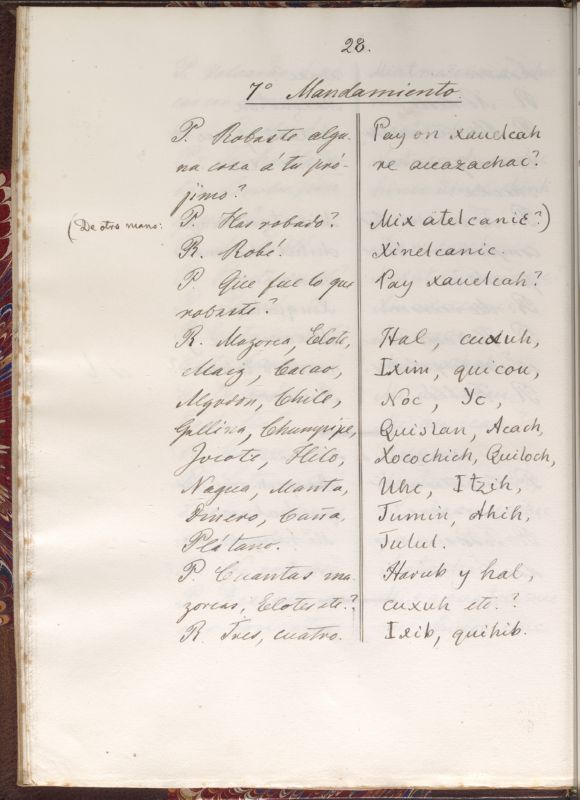 28.
7º Mandamiento
P. Robaste algu- Pay on xauelcah
na cosa á tu pró- re auazachac?
jimo?
(De otra mano: P. Has robado? Mix atelcanic?)
R. Robé. Xinelcanic.
P. Que fue lo que Pay xauelcah?
robaste?
R. Mazorca, Elote, Hal, cuxuh,
Maiz, Cacao, Ixim, quicou,
Algodon, Chile, Noc, Yc,
Gallina, Chumpipe, Quislan, Acach,
Jocote, Hilo, Xocochich, Quiloch,
Nagua, Manta, Uhc, Itzih,
Dinero, Caña, Tumin, Ahih,
Plátano. Tulul.
P. Cuantas ma- Harub y hal,
zorcas, Elotes etc.? cuxuh etc.?
R. Tres, cuatro. Ixib, quihib.